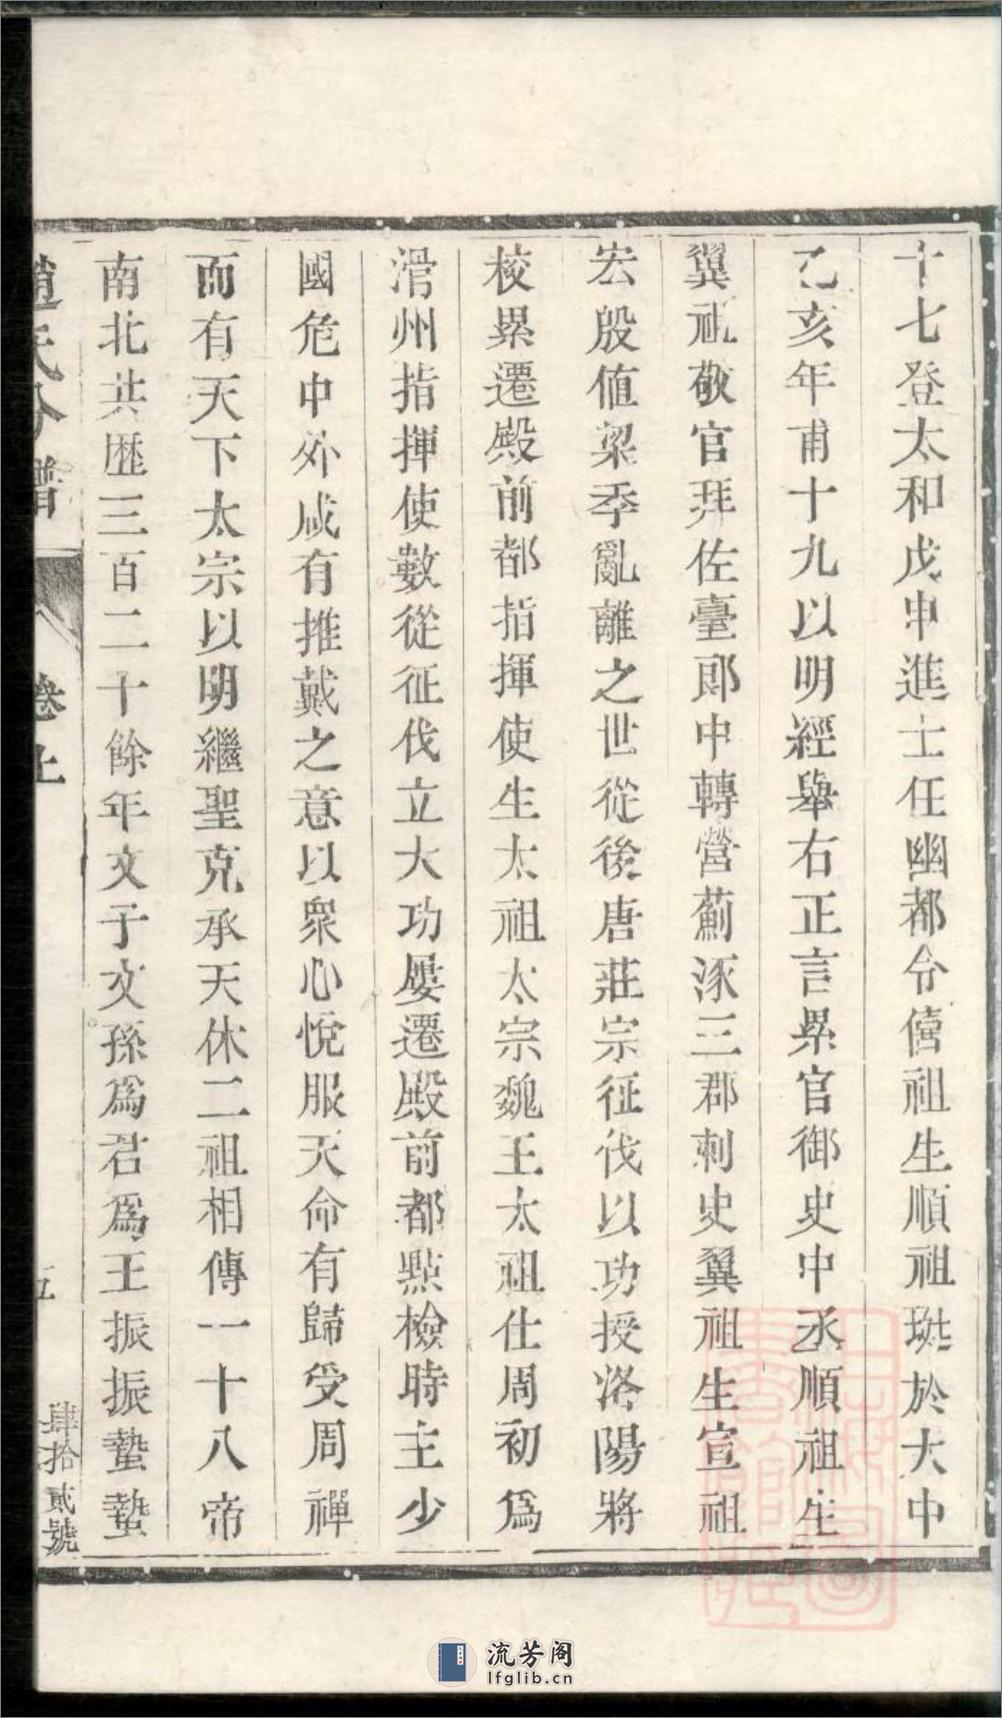 十七登太和戊申進士任幽都令僖祖生順祖珙於大中
乙亥年甫十九以明經舉右正言累官御史中丞順祖生
翼祖敬官拜佐臺郎中轉營薊涿三郡刺史翼祖生宣祖
宏殷值梁季亂離之世從後唐莊宗征伐以功授洛陽將
校累遷殿前都指揮使生太祖太宗魏王太祖仕周初為
滑州指揮使數從征伐立大功屢遷殿前都點檢時主少
國危中外咸有推戴之意以眾心悅服天命有歸受周禪
而有天下太宗以明繼聖克承天休二祖相傳一十八帝
南北共歷三百二十餘年文子文孫為君為王振振蟄蟄
趙氏 譜
卷上
五
肆拾貳號
流芳阁
lfglib.cn